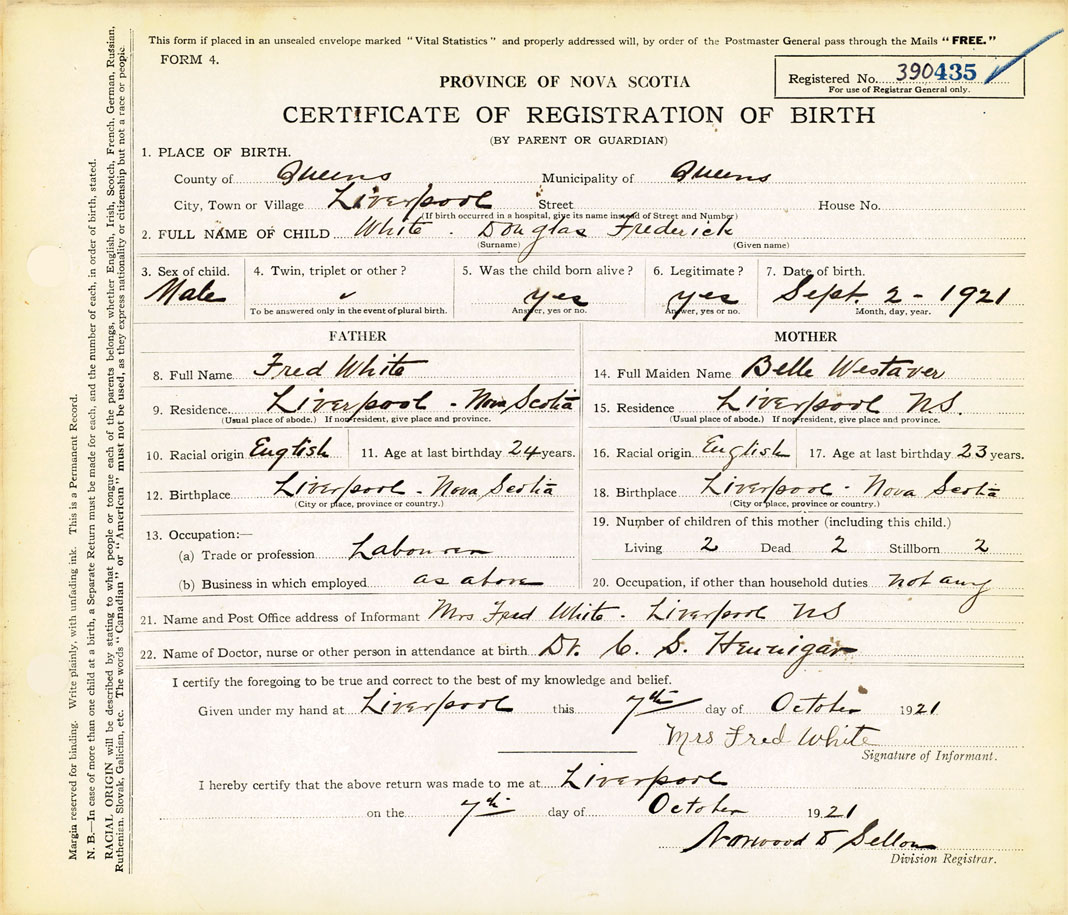 This form if placed in an unsealed envelope marked "Vital Statistics" and properly addressed will, by order of the Postmaster General pass through the Mails "FREE."
FORM 4.
Registered No. 390435
For use of Registrar General only.
PROVINCE OF NOVA SCOTIA
CERTIFICATE OF REGISTRATION OF BIRTH
(BY PARENT OR GUARDIAN)
1. PLACE OF BIRTH.
County of Queens Municipality of Queens
City, Town or Village Liverpool Street House No.
(If birth occurred in a hospital, give its name instead of Street and Number)
2. FULL NAME OF CHILD White - Douglas Frederick
(Surname) (Given name)
3. Sex of child. 4. Twin, triplet or other? 5. Was the child born alive? 6. Legitimate? 7. Date of birth.
Male yes yes Sept. 2 - 1921
To be answered only in the event of plural birth. Answer, yes or no. Answer, yes or no. Month, day, year.
FATHER MOTHER
8. Full Name Fred White 14. Full Maiden Name Belle Westaver
9. Residence. Liverpool - Nova Scotia 15. Residence Liverpool N.S.
(Usual place of abode.) If non-resident, give place and province. (Usual place of abode.) If non-resident, give place and province.
10. Racial origin English 11. Age at last birthday 24 years. 16. Racial origin English 17. Age at last birthday 23 years.
12. Birthplace Liverpool - Nova Scotia 18. Birthplace Liverpool - Nova Scotia
(City or place, province or country.) (City or place, province or country.)
13. Occupation:— 19. Number of children of this mother (including this child.)
(a) Trade or profession Labourer Living 2 Dead 2 Stillborn 2
(b) Business in which employed as above 20. Occupation, if other than household duties not any
21. Name and Post Office address of Informant Mrs Fred White - Liverpool NS
22. Name of Doctor, nurse or other person in attendance at birth Dr. C. S. Hennigar
I certify the foregoing to be true and correct to the best of my knowledge and belief.
Given under my hand at Liverpool this 7th day of October 1921
Mrs Fred White
Signature of Informant.
I hereby certify that the above return was made to me at Liverpool
on the 7th day of October 1921
Norwood Sellon
Division Registrar.
Margin reserved for binding. Write plainly, with unfading ink. This is a Permanent Record.
N. B.—In case of more than one child at a birth, a Separate Return must be made for each, and the number of each, in order of birth, stated.
RACIAL ORIGIN will be described by stating to what people or tongue each of the parents belongs, whether English, Irish, Scotch, French, German, Russian,
Ruthenian, Slovak, Galician, etc. The words "Canadian" or "American" must not be used, as they express nationality or citizenship but not a race or people.